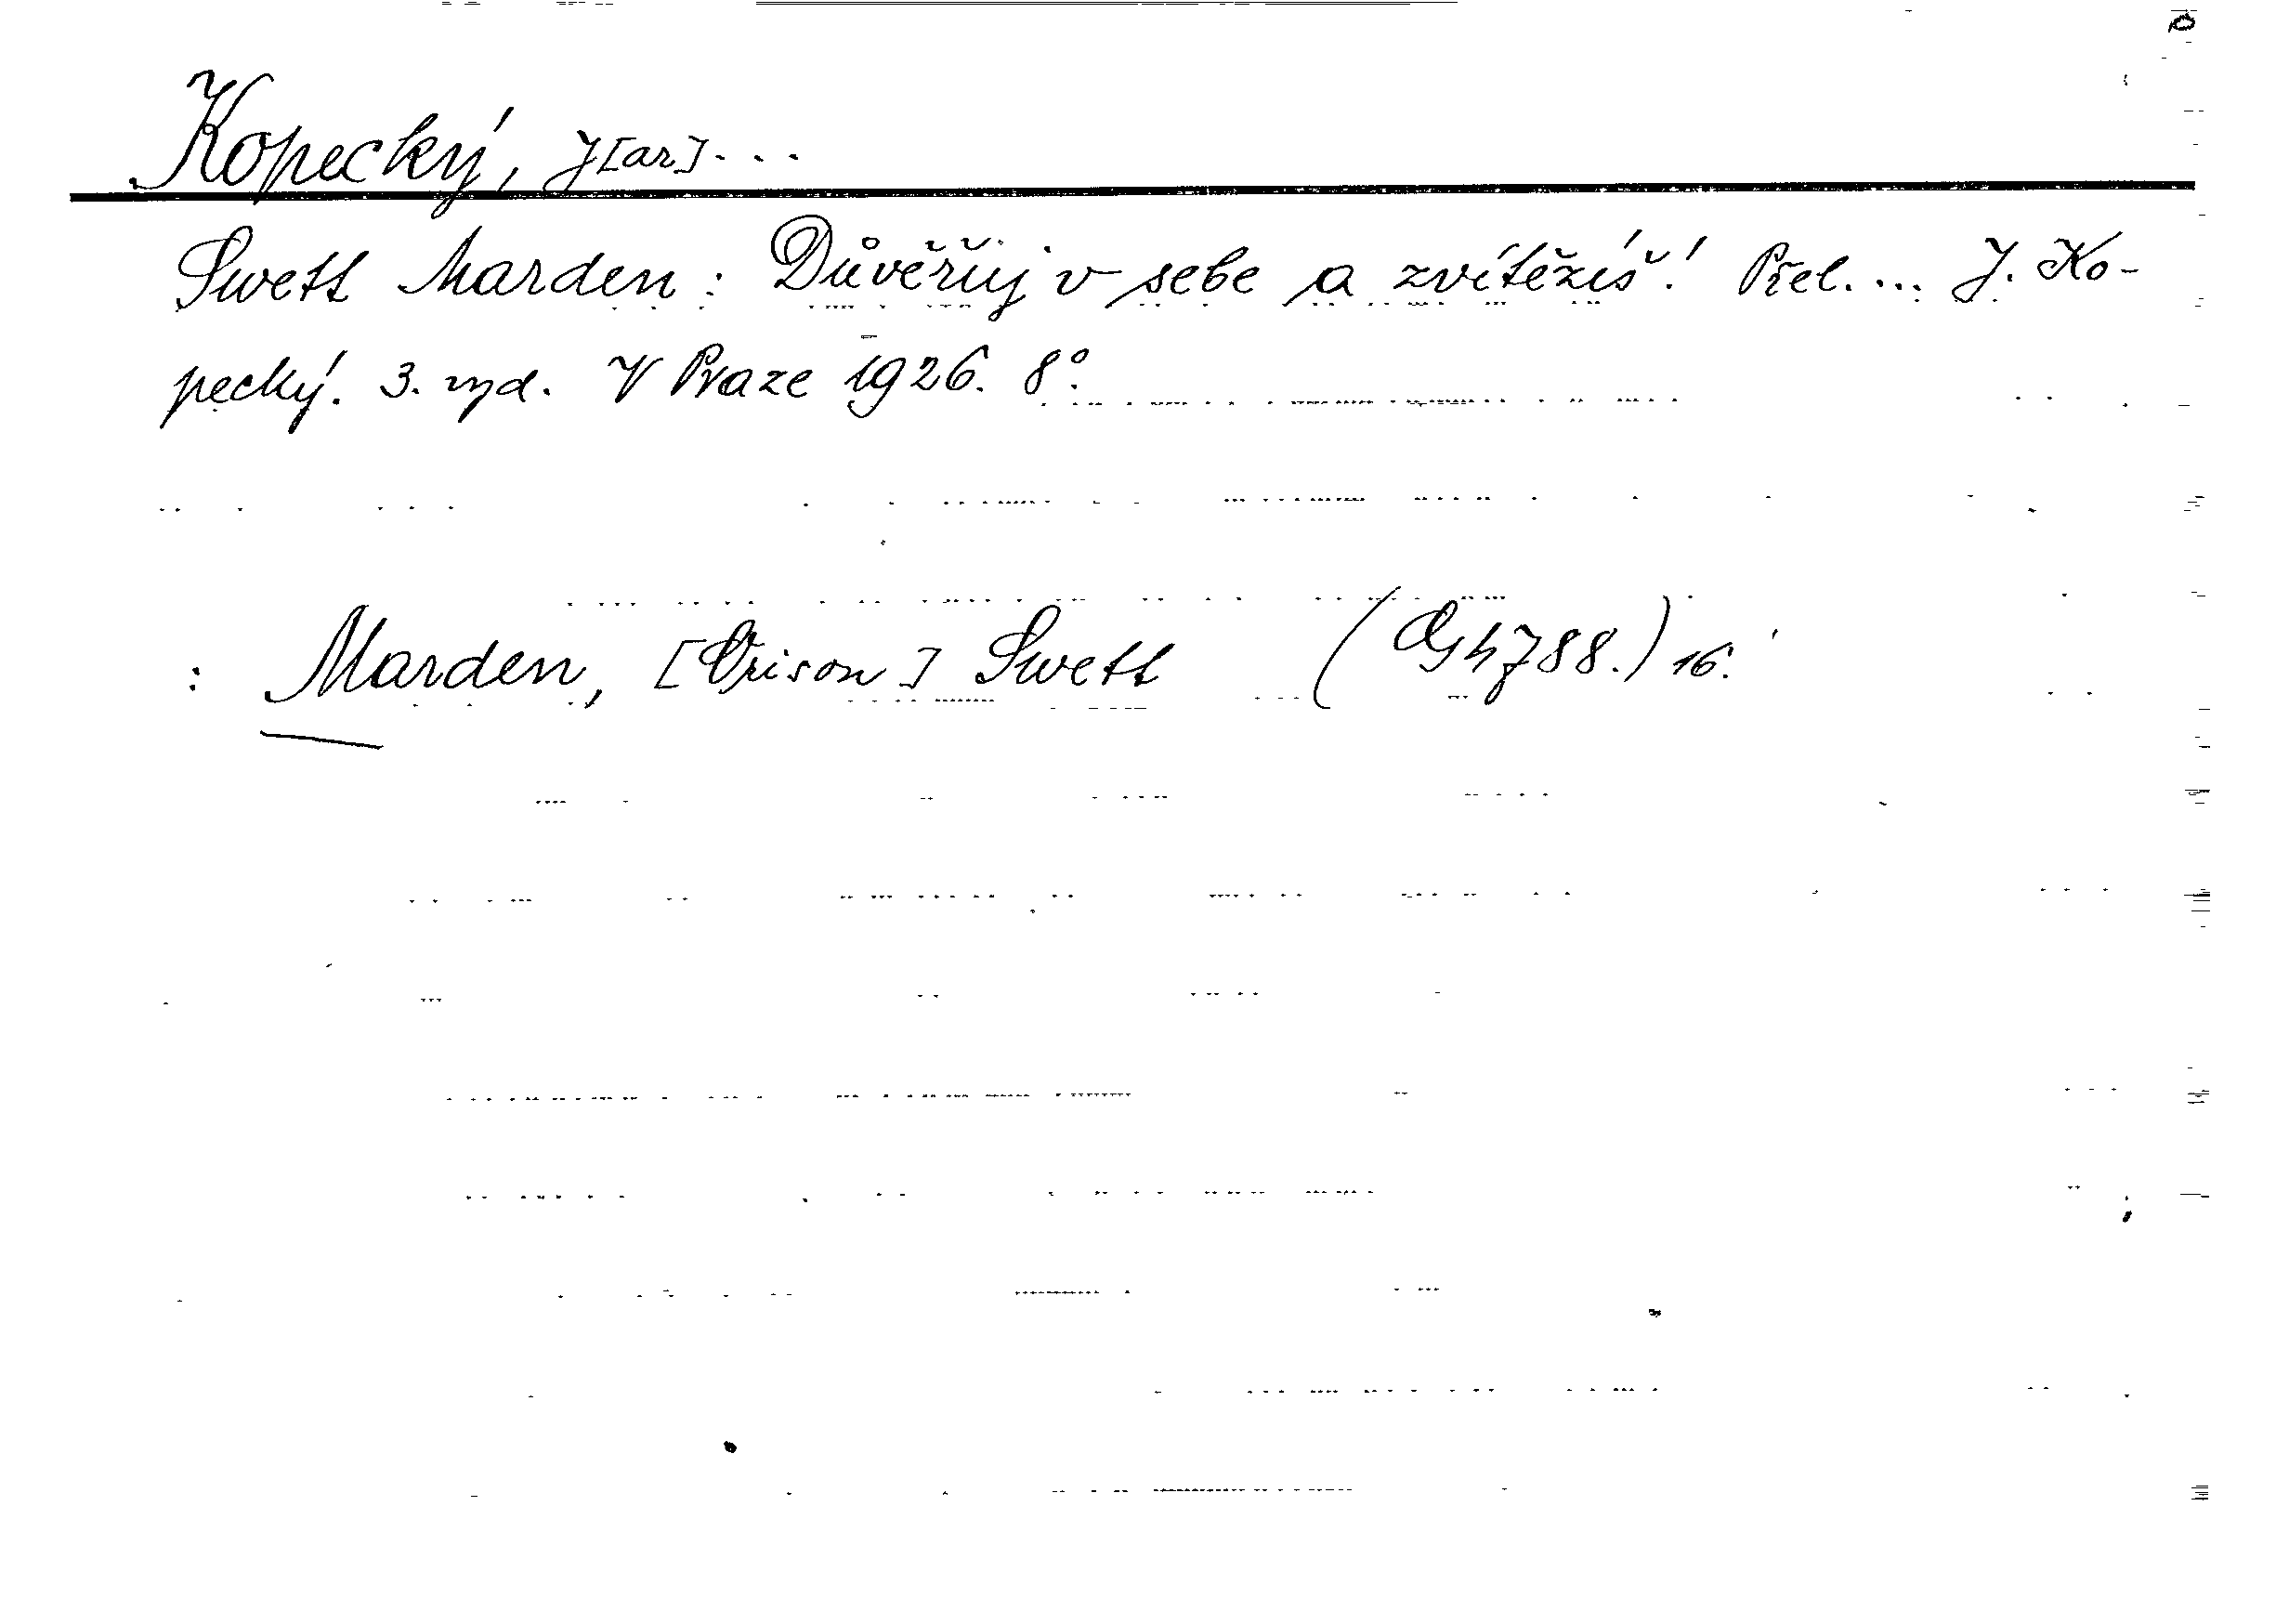 Kopecký, J[ar]...
Swett Marden: Důvěřuj v sebe a zvítězíš! Přel.... J. Ko-
pecký. 3. vyd. V Praze 1926. 8°.
: Marden, [Orison] Swett 16.